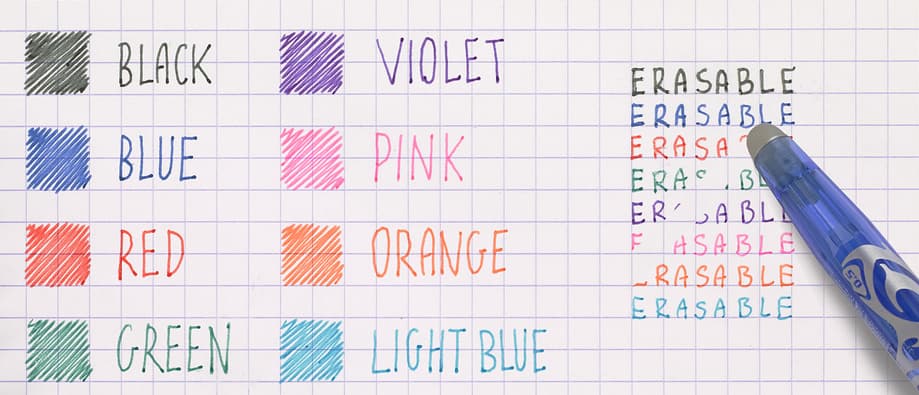 BLACK
BLUE
RED
GREEN
VIOLET
PINK
ORANGE
LIGHT BLUE
ERASABLE
ERASABLE
ERASA
ERA BL
ER ABL
ASABLE
RASABLE
ERASABLE
0.5